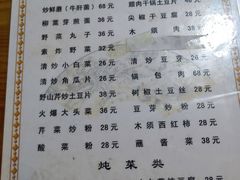 炒鲜蘑（牛肝菌） 68元 腊肉干锅土豆片 38元
柳蒿芽煎蛋 36元 尖椒干豆腐 28元
野菜丸子 36元 木须肉 38元
素炸野菜 32元
清炒小白菜 26元 清炒土豆片 26元
清炒角瓜片 26元 锅包肉 68元
野山芹炒土豆片 38元 树椒土豆丝 28元
火爆大头菜 36元 豆芽炒粉 28元
芹菜炒粉 28元 木须西红柿 28元
酸菜粉 28元 蘸酱菜 38元
炖菜类